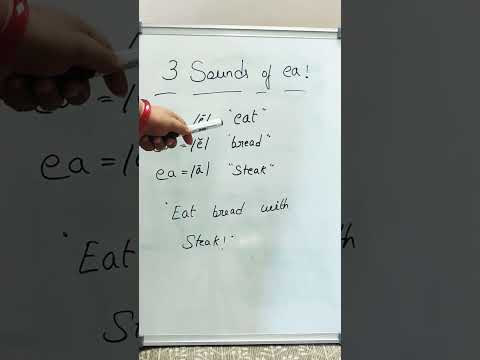 3 Sounds of ea!
/ē/ "eat"
=/ĕ/ "bread"
ea =/ā/ "Steak"
"Eat bread with
Steak!"